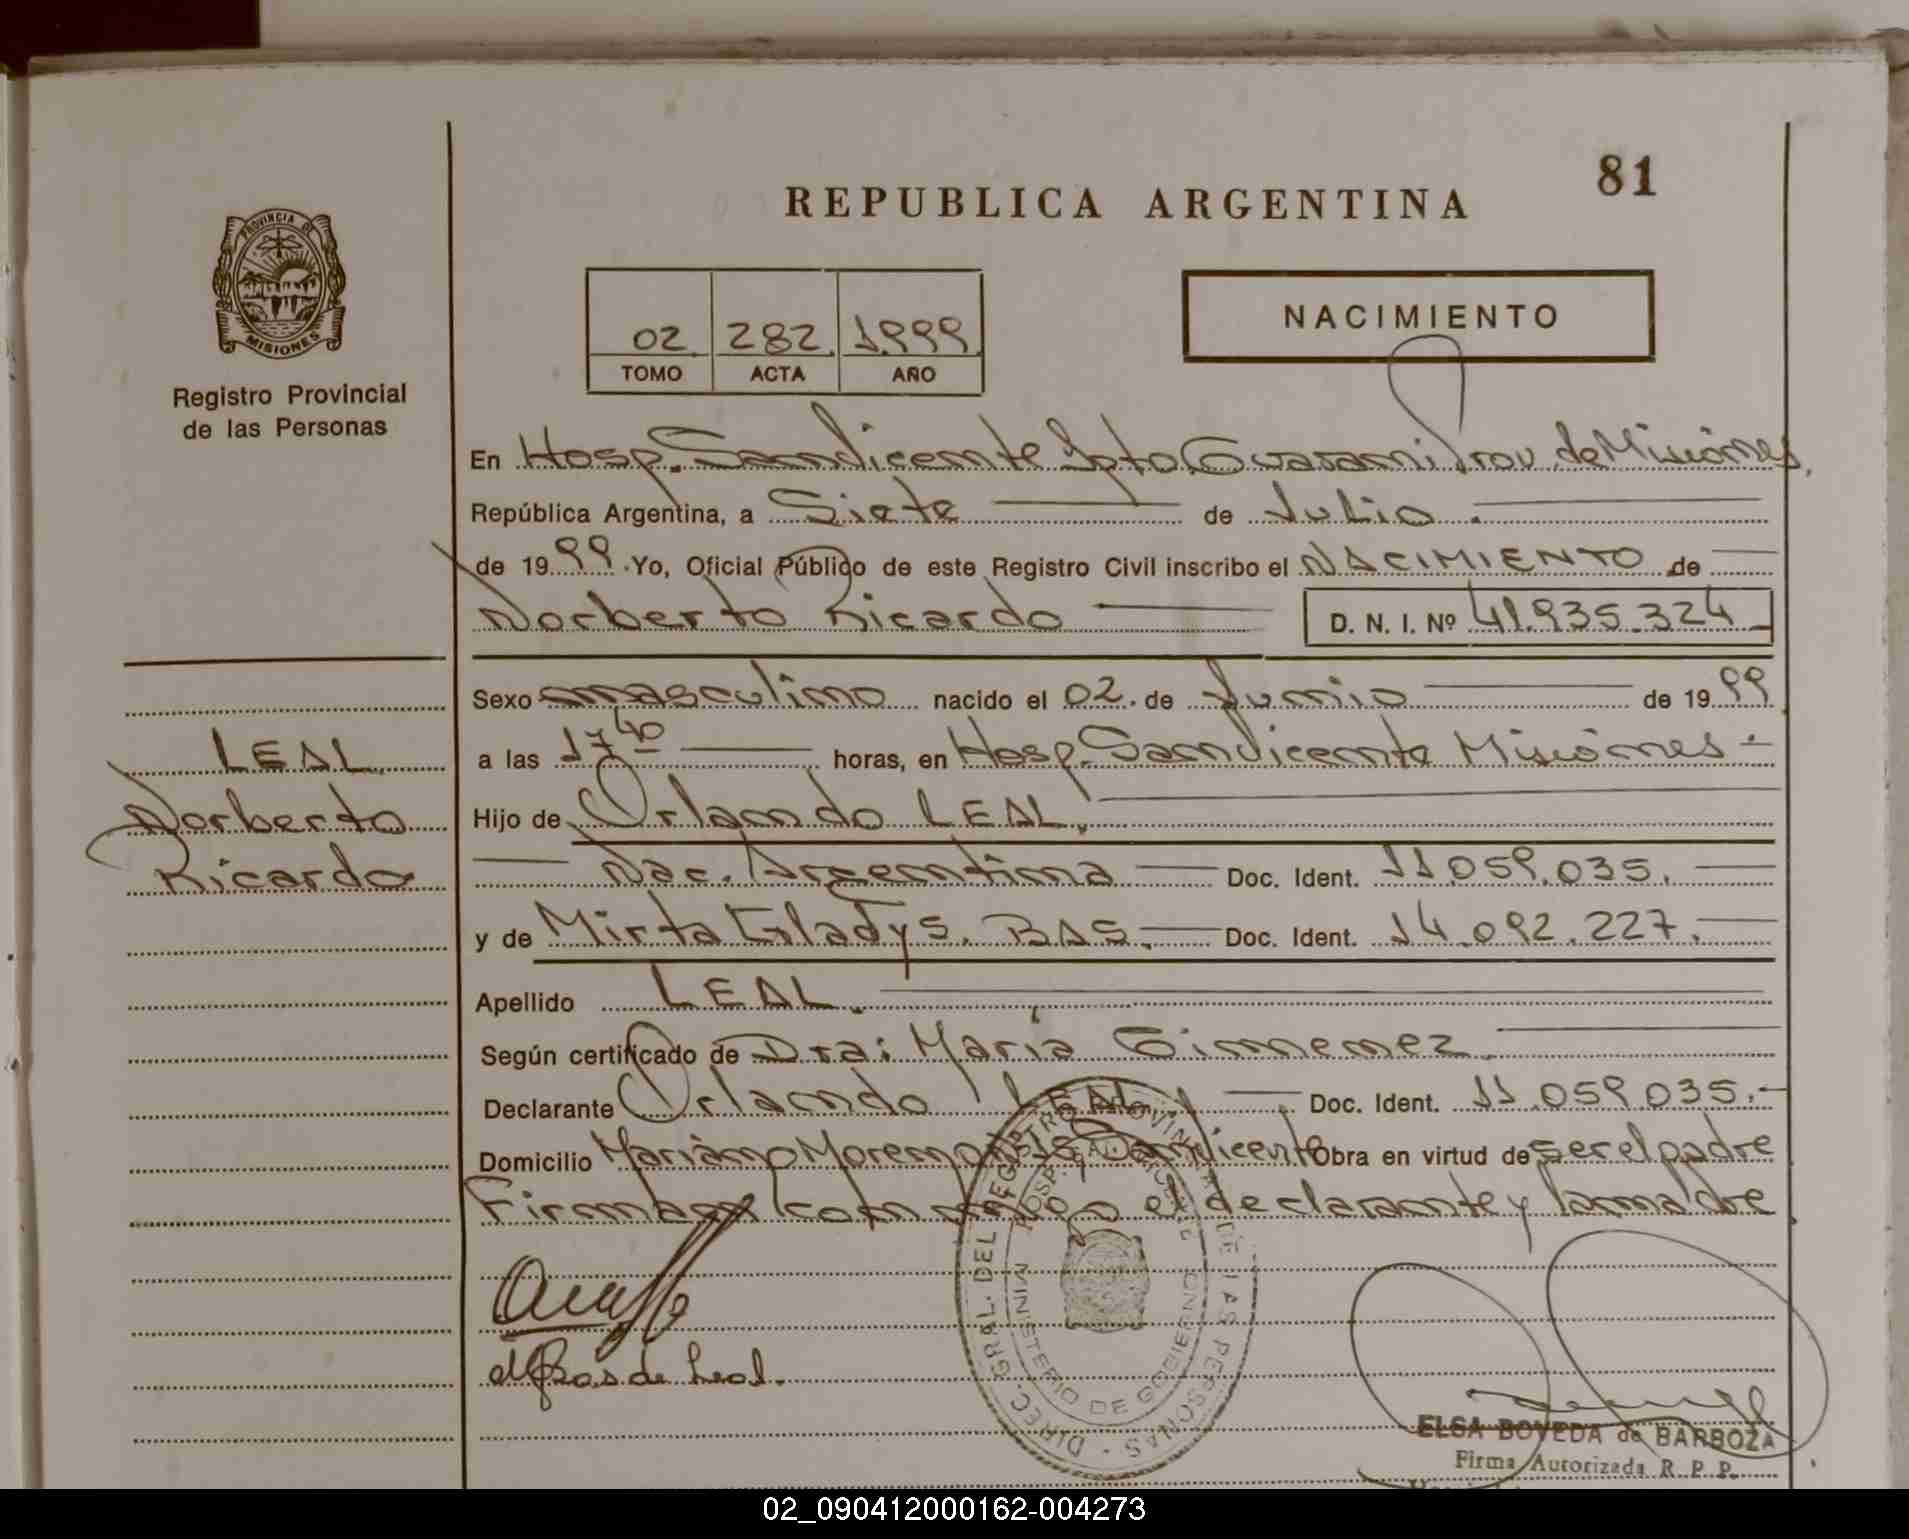 81
REPUBLICA ARGENTINA
PROVINCIA DE
MISIONES
Registro Provincial
de las Personas
02 282 1999
TOMO ACTA AÑO
NACIMIENTO
En Hosp. San Vicente Dpto Guarani Prov. de Misiones,
República Argentina, a Siete de Julio
de 1999 Yo, Oficial Público de este Registro Civil inscribo el NACIMIENTO de
Norberto Ricardo D. N. I. Nº 41.935.324
Sexo masculino nacido el 02. de Junio de 1999
a las 17 40 horas, en Hosp. San Vicente Misiones
Hijo de Orlando LEAL.
Nac. Argentina Doc. Ident. 11.059.035.
y de Mirta Gladys. BAS. Doc. Ident. 14.092.227.
Apellido LEAL.
Según certificado de Dra: Maria Gimenez.
Declarante Orlando LEAL Doc. Ident. 11.059.035.
Domicilio Mariano Moreno San Vicente Obra en virtud de ser el padre
Firman conmigo el declarante y la madre
LEAL
Norberto
Ricardo
MGBas de Leal.
DIREC. GRAL. DEL REGISTRO PROVINCIAL DE LAS PERSONAS
HOSP. SAN VICENTE
MINISTERIO DE GOBIERNO
ELSA BOVEDA de BARBOZA
Firma Autorizada R. P. P.
02_090412000162-004273